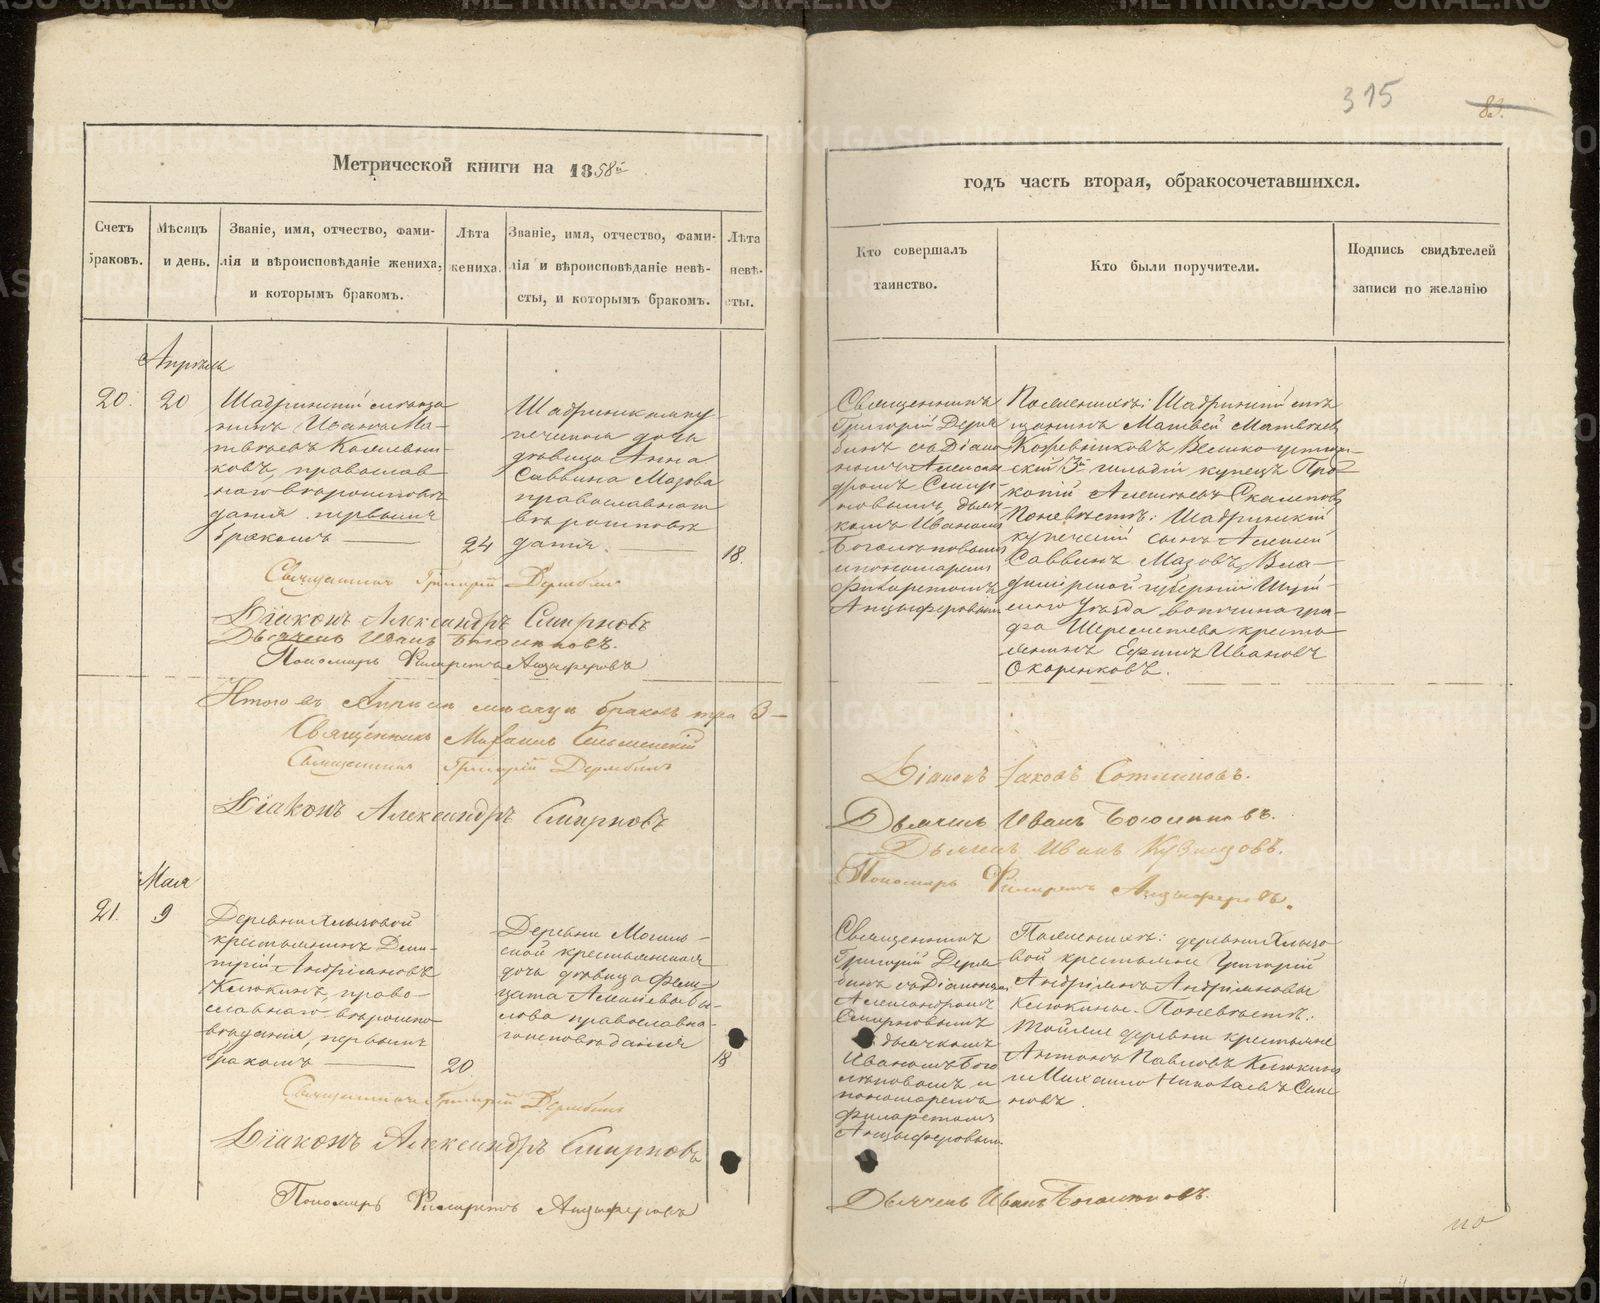 315
83.
Метрической книги на 1858й
годъ часть вторая, обракосочетавшихся.
Счетъ браковъ.
Мѣсяцъ и день.
Званіе, имя, отчество, фами-
лія и вѣроисповѣданіе жениха,
и которымъ бракомъ.
Лѣта
жениха.
Званіе, имя, отчество, фами-
лія и вѣроисповѣданіе невѣ-
сты, и которымъ бракомъ.
Лѣта
невѣ-
сты.
Кто совершалъ
таинство.
Кто были поручители.
Подпись свидѣтелей
записи по желанію
Апрѣль
20.
20
Шадринскій мѣща
нинъ Иванъ Ма-
твѣевъ Кожевни-
ковъ, православ
наго вѣроисповѣ
данія первымъ
бракомъ
24
дочь
дѣвица Анна
Саввина Мазова
православнаго
вѣроисповѣ
данія.
18.
Священникъ
Григорій Деря
бинъ съ Діако
номъ Алексан
дромъ Смир-
новымъ, дьяч
комъ Иваномъ
Боголѣповымъ
и пономаремъ
Филаретомъ
Анцыферовымъ
По женихѣ: Шадринскій мѣ
щанинъ Матвей Матвѣевъ
Кожевниковъ Велико-устюж-
скій 3й гильдіи купецъ Про-
копій Алексѣевъ
По невѣстѣ: Шадринскій
купеческій сынъ Алексѣй
Саввинъ Мазовъ, Вла-
димірской губерніи Шуй-
скаго Уѣзда вотчины гра-
фа Шереметева кресть
янинъ Ефимъ Ивановъ
Окоренковъ.
Священникъ Григорій Дерябинъ
Діаконъ Александръ Смирновъ
Дьячекъ Иванъ Боголѣповъ.
Пономарь Филаретъ Анцыферовъ
Итого въ Апрѣлѣ мѣсяцѣ браковъ три 3
Священникъ Михаилъ
Священникъ Григорій Дерябинъ
Діаконъ Александръ Смирновъ
Діаконъ Іаковъ Сотниковъ.
Дьячекъ Иванъ Боголѣповъ.
Дьячекъ Иванъ Кузнецовъ.
Пономарь Филаретъ Анцыферовъ.
Мая
21.
9
Деревни Хлызовой
крестьянинъ Дми-
трій Андріяновъ
Клюкинъ, право-
славнаго вѣроиспо-
вѣданія, первымъ
бракомъ
20
Деревни Могиль-
ской крестьянская
дочь дѣвица Фели-
цата Алексѣева
православна-
го исповѣданія
18
Священникъ
Григорій Деря
бинъ съ Діакономъ
Александромъ
Смирновымъ
дьячкомъ
Иваномъ Бого
лѣповымъ и
пономаремъ
Филаретомъ
Анцыферовымъ
По женихѣ: деревни Хлызо
вой крестьяне Григорій
Андріянъ Андріяновы
Клюкины. По невѣстѣ:
тойже деревни крестьяне
Антонъ Павловъ Клюкинъ
и Михайло Николаевъ
Священникъ Григорій Дерябинъ
Діаконъ Александръ Смирновъ
Пономарь Филаретъ Анцыферовъ
Дьячекъ Иванъ Боголѣповъ.
METRIKI.GASO-URAL.RU